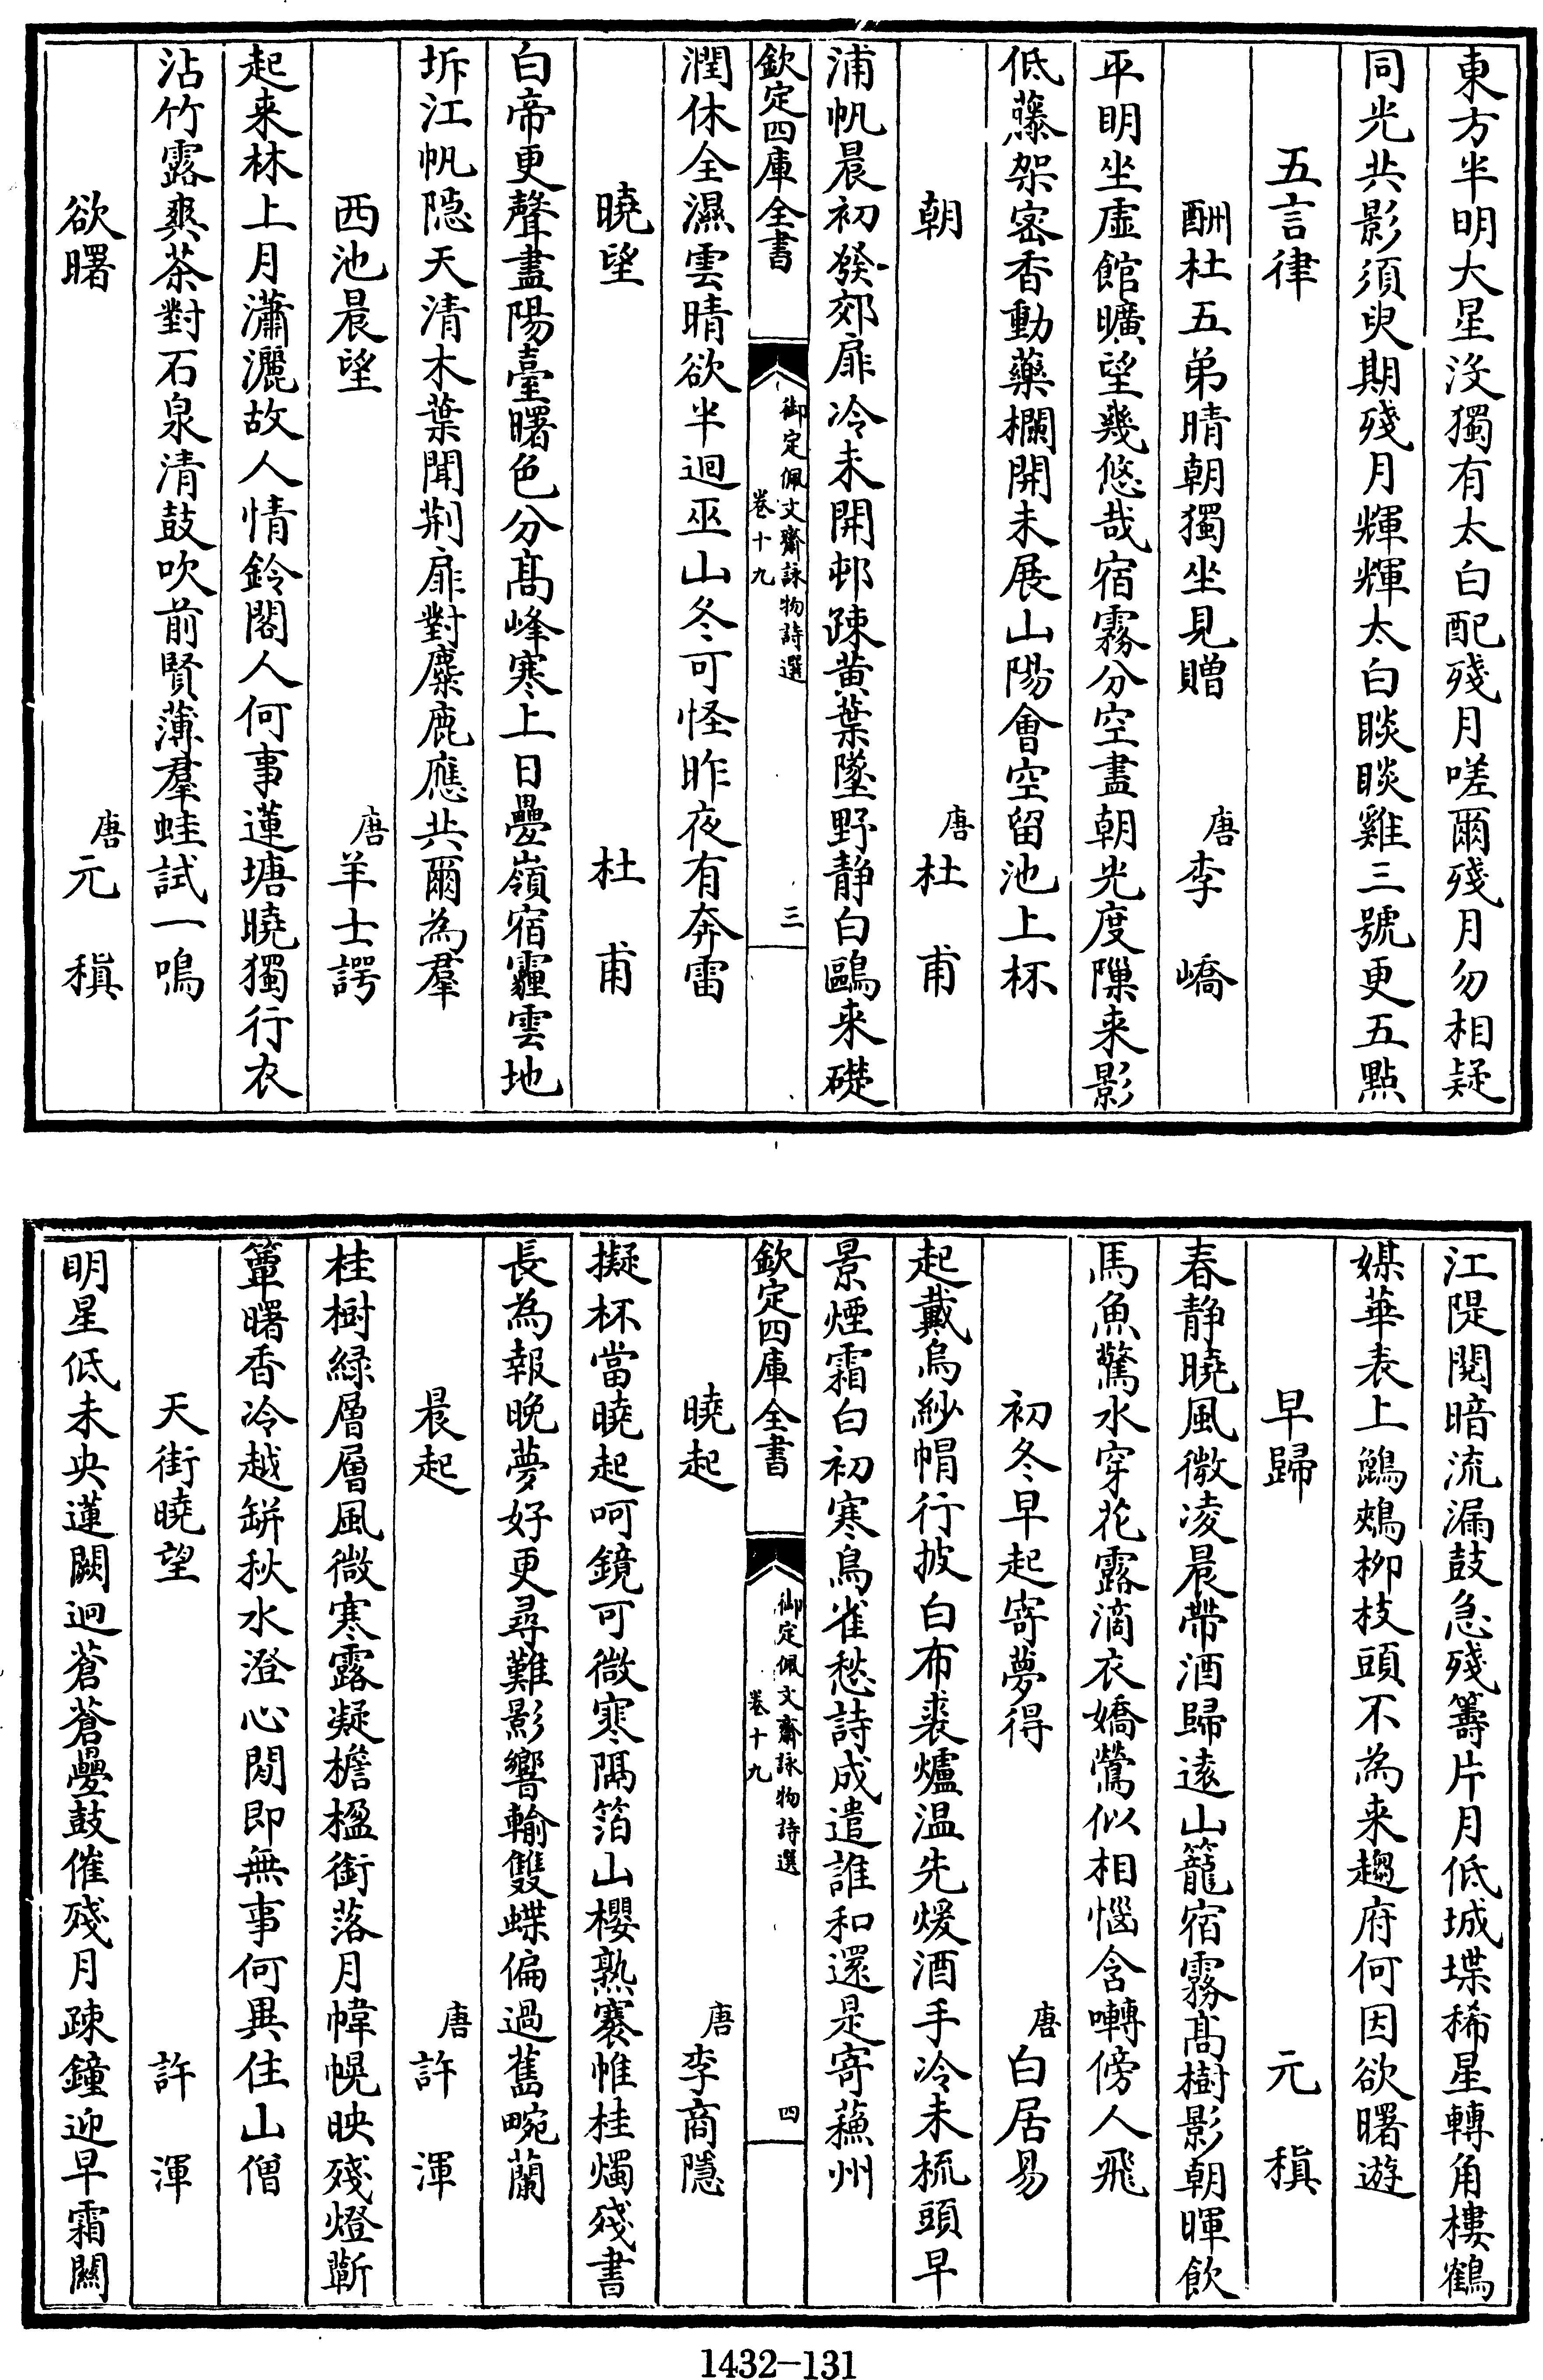 東方半明大星没獨有太白配殘月嗟爾殘月勿相疑
同光共影須臾期殘月輝輝太白睒睒雞三號更五點
五言律
酬杜五弟晴朝獨坐見贈 唐李嶠
平明坐虛館曠望幾悠哉宿霧分空盡朝光度隟来影
低藤架密香動藥欄開未展山陽會空留池上杯
朝 唐杜甫
浦帆晨初發郊扉冷未開邨踈黄葉墜野静白鷗来礎
欽定四庫全書
御定佩文齋詠物詩選
卷十九
三
潤休全濕雲晴欲半迴巫山冬可怪昨夜有奔雷
曉望 杜甫
白帝更聲盡陽臺曙色分髙峰寒上日疊嶺宿霾雲地
坼江帆隠天清木葉聞荆扉對麋鹿應共爾為羣
西池晨望 唐羊士諤
起来林上月瀟灑故人情鈴閣人何事蓮塘曉獨行衣
沾竹露爽茶對石泉清鼓吹前賢薄羣蛙試一鳴
欲曙 唐元稹
江隄閱暗流漏鼓急殘籌片月低城堞稀星轉角樓鶴
媒華表上鸜鵒柳枝頭不為来趨府何因欲曙遊
早歸 元稹
春静曉風微凌晨帶酒歸逺山籠宿霧髙樹影朝暉飲
馬魚驚水穿花露滴衣嬌鶯似相惱含囀傍人飛
初冬早起寄夢得 唐白居易
起戴烏紗帽行披白布裘爐温先煖酒手冷未梳頭早
景煙霜白初寒鳥雀愁詩成遣誰和還是寄蘓州
欽定四庫全書
御定佩文齋詠物詩選
卷十九
四
曉起 唐李商隱
擬杯當曉起呵鏡可微寒隔箔山櫻熟褰帷桂燭殘書
長為報晚夢好更尋難影響輸雙蝶偏過舊畹蘭
晨起 唐許渾
桂樹綠層層風微寒露凝檐楹銜落月幃幌映殘燈蘄
簟曙香冷越缾秋水澄心閒即無事何異住山僧
天街曉望 許渾
明星低未央蓮闕迥蒼蒼疊鼓催殘月踈鐘迎早霜關
1432-131